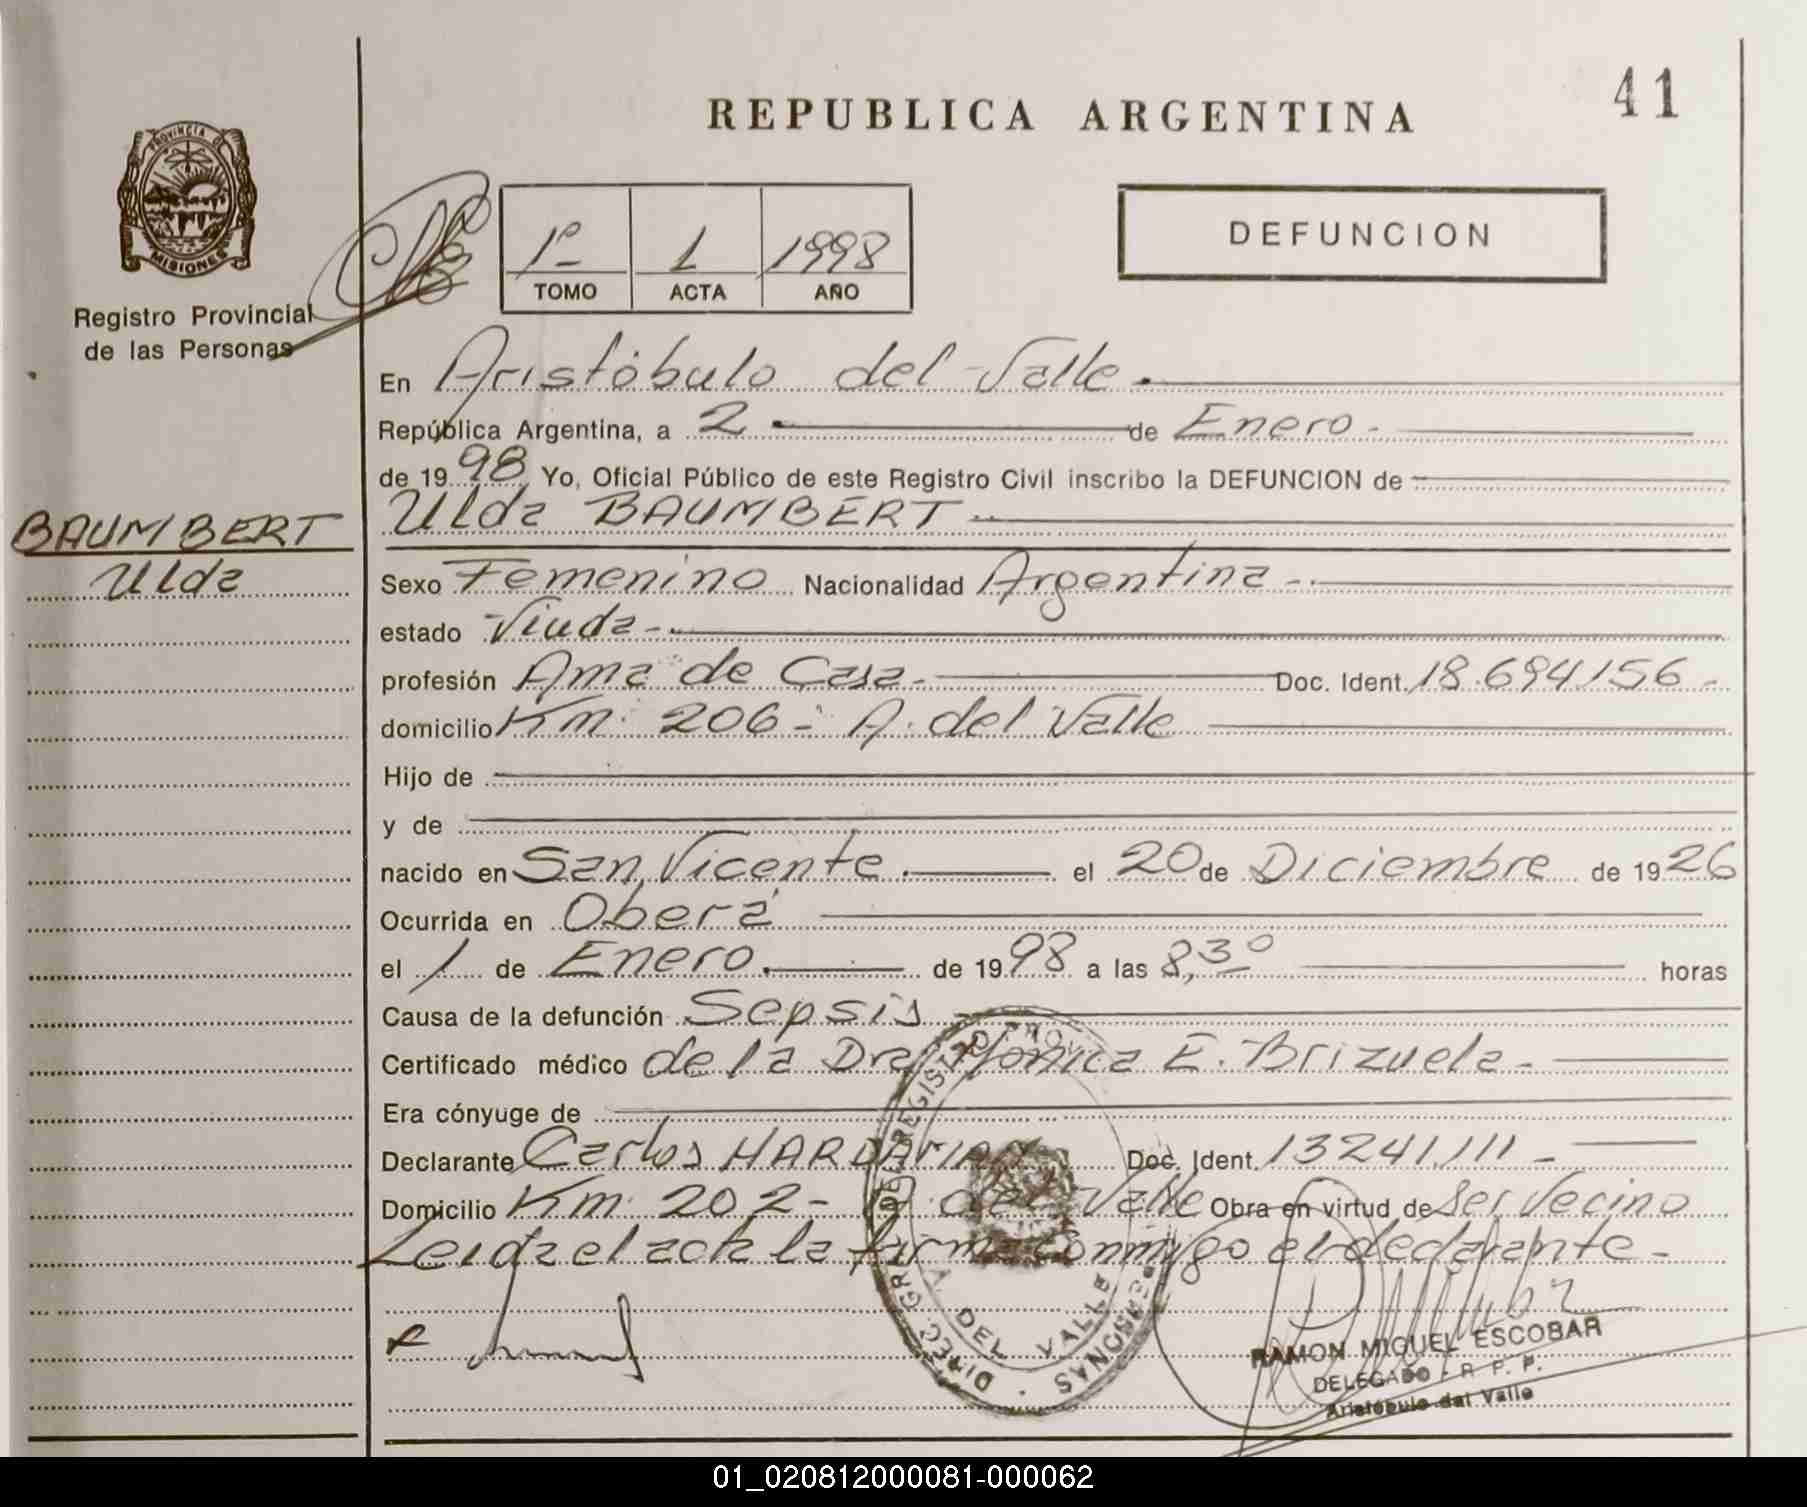 41
REPUBLICA ARGENTINA
PROVINCIA DE
MISIONES
Registro Provincial
de las Personas
1º 1 1998
TOMO ACTA AÑO
DEFUNCION
En Aristóbulo del Valle.
República Argentina, a 2 de Enero.
de 1998 Yo, Oficial Público de este Registro Civil inscribo la DEFUNCION de
Ulda BAUMBERT
BAUMBERT
Ulda
Sexo Femenino Nacionalidad Argentina
estado Viuda
profesión Ama de Casa Doc. Ident. 18.694.156
domicilio Km. 206 - A. del Valle
Hijo de
y de
nacido en San Vicente el 20 de Diciembre de 1926
Ocurrida en Oberá
el 1 de Enero. de 1998 a las 8,30 horas
Causa de la defunción Sepsis
Certificado médico de la Dra. Monica E. Brizuela
Era cónyuge de
Declarante Carlos Doc. Ident. 13241.111
Domicilio Km. 202 - A. del Valle Obra en virtud de Ser Vecino
Leida el acta la firma conmigo el declarante
DIREC. GRAL. DEL REGISTRO PROV. PERSONAS
A. DEL VALLE
RAMON MIGUEL ESCOBAR
DELEGADO - R. P. P.
Aristóbulo del Valle
01_020812000081-000062